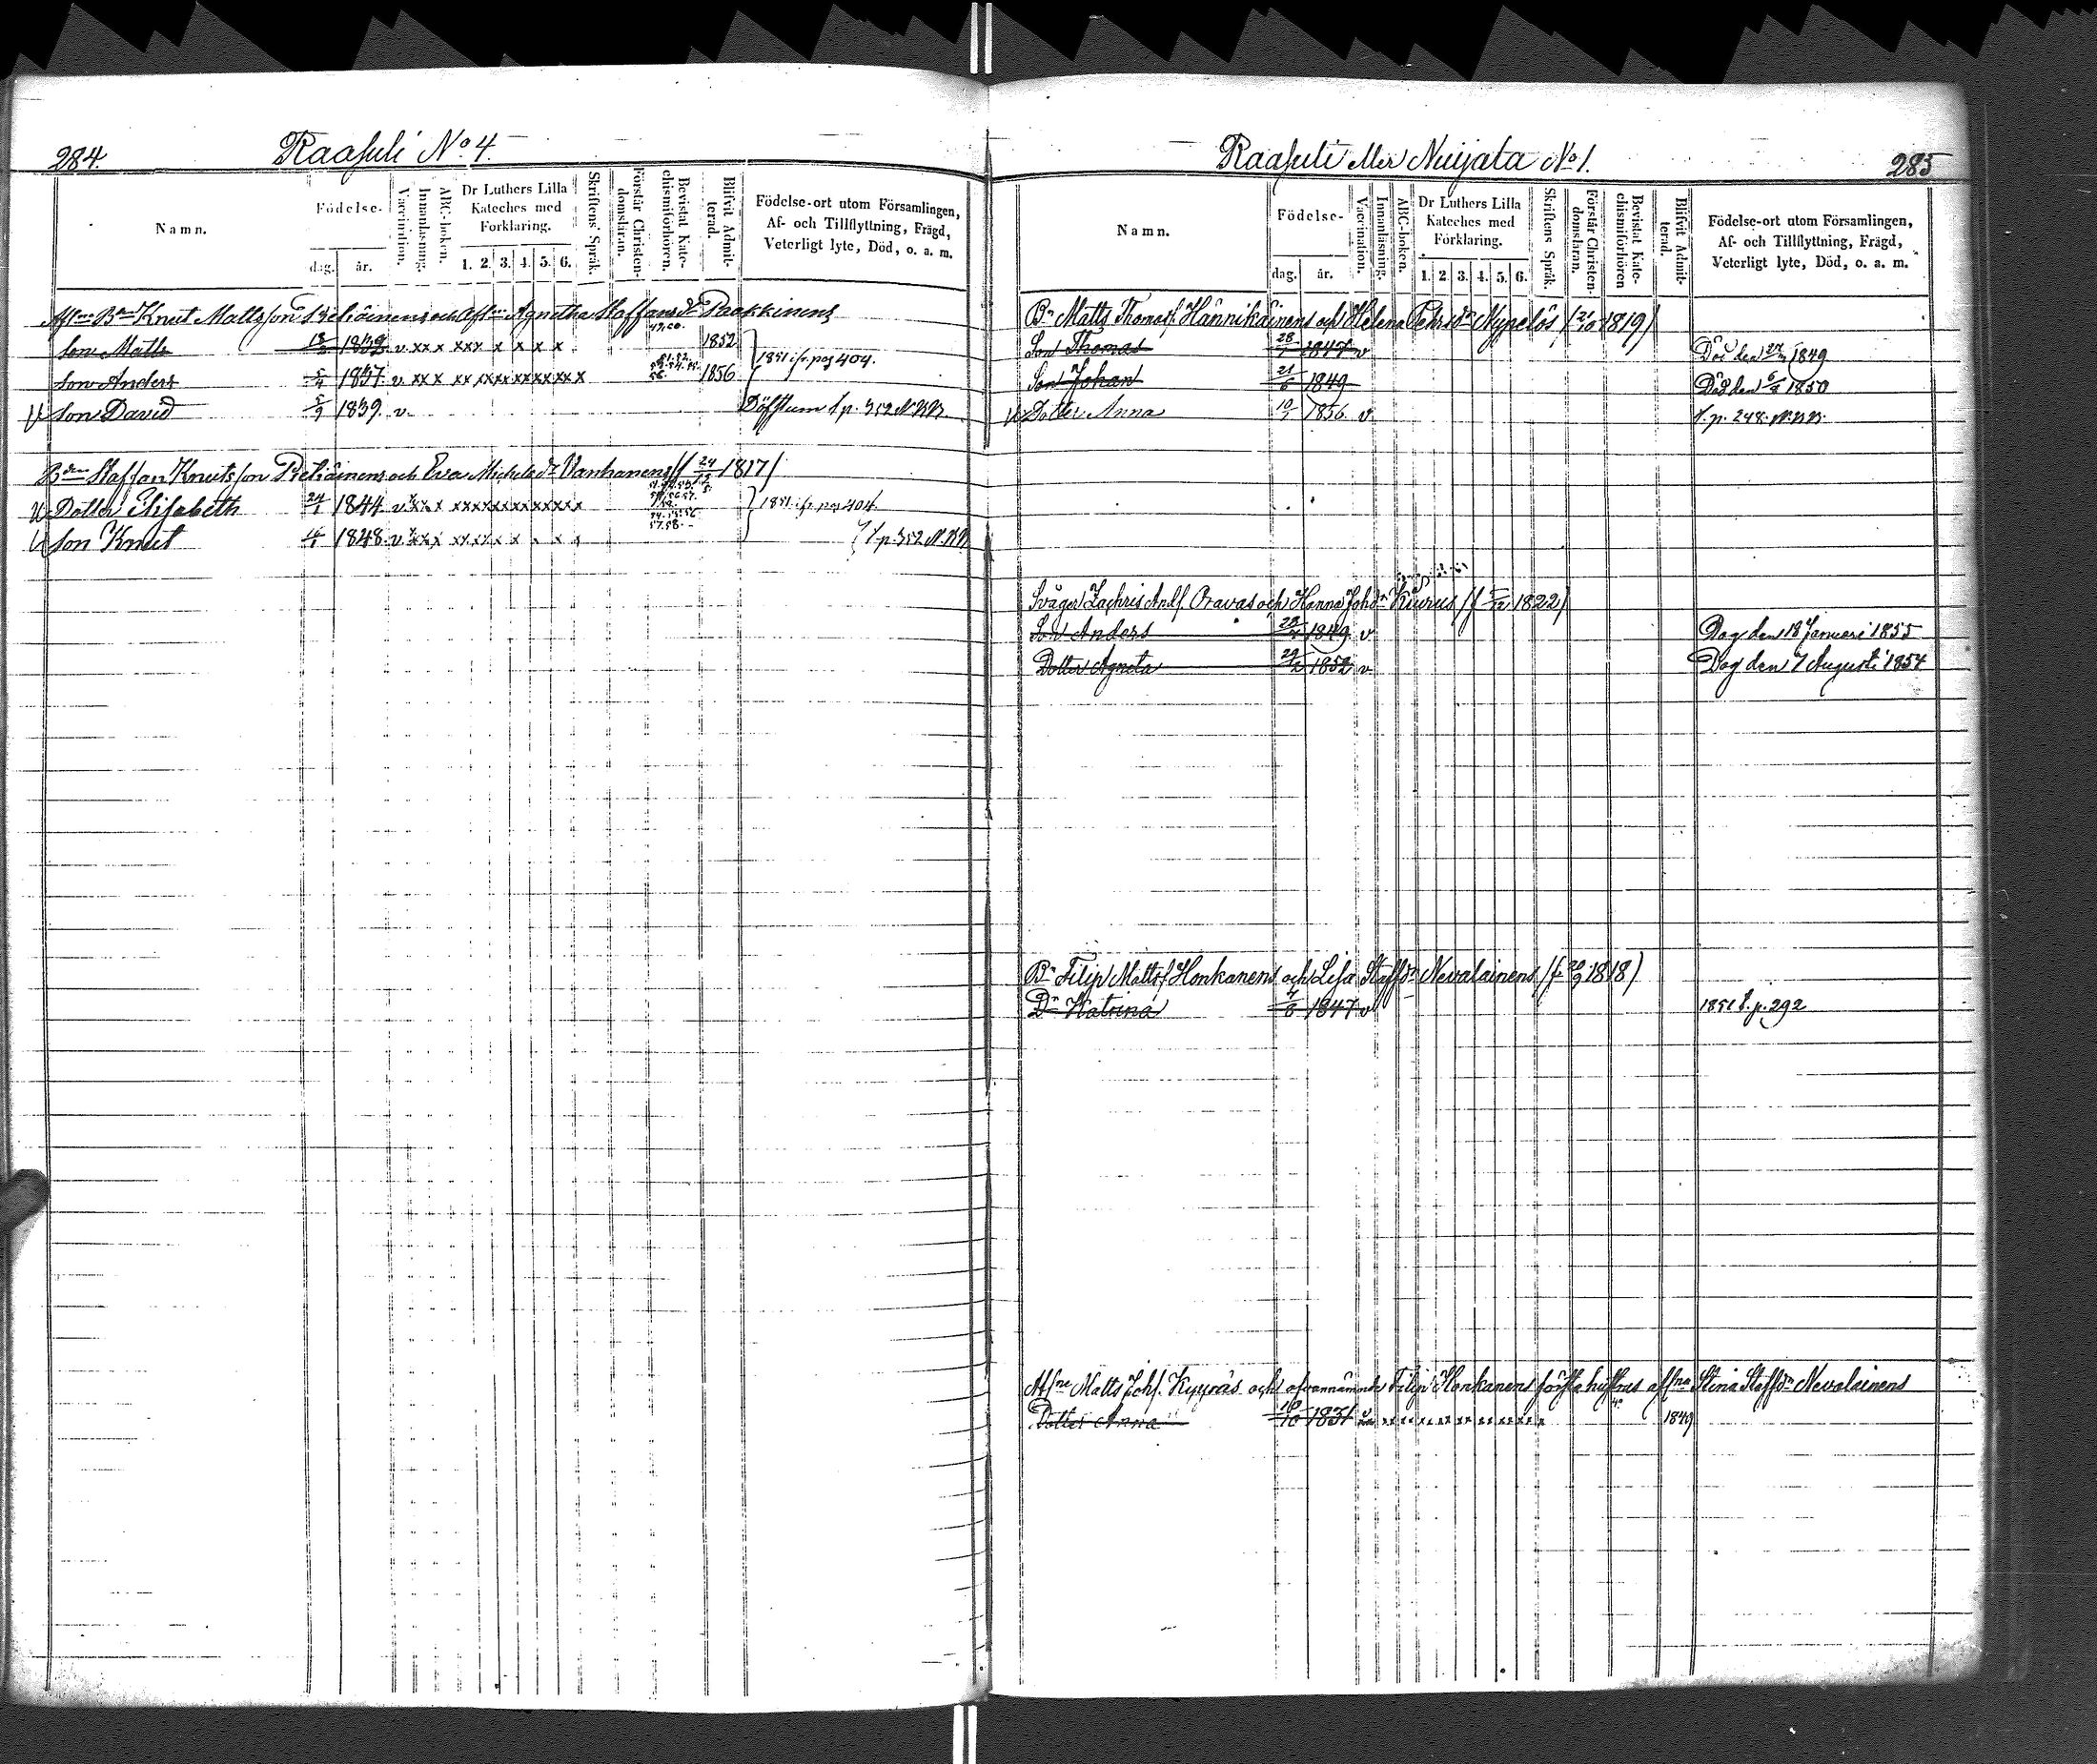 284. Raasuli No 4.
Namn.
Födelse-
dag. år.
Vaccination.
Innanläsning.
ABC-boken.
Dr Luthers Lilla Kateches med Förklaring.
1. 2. 3. 4. 5. 6.
Skriftens Språk.
Förstår Christendomsläran.
Bevistat Katechismiförhören.
Blifvit Admitterad.
Födelse-ort utom Församlingen,
Af- och Tillflyttning, Frägd,
Veterligt lyte, Död, o. a. m.
Knut Mattsson och Agnetha Staffans dr Paakkinens
Son Matts 1852
Son Anders 5/4 1837 v xx x 1856 1851 i fr. pag 404.
Son David 5/9 1839. v. Döfstum t. p. 352 N.B.
Staffan Knutsson och Eva Michels dr Vanhanens (f 24/12 1817)
Dotter Elisabeth 24/1 1844 v 1851 i fr. pag 404
Son Knut 1848 v t. p. 352 N.B.
Raasuli eller Nuijata No 1. 285
Namn.
Födelse-
dag. år.
Vaccination.
Innanläsning.
ABC-boken.
Dr Luthers Lilla
Kateches med
Förklaring.
1. 2. 3. 4. 5. 6.
Skriftens Språk.
Förstår Christendomsläran.
Bevistat Katechismiförhören
Blifvit Admitterad.
Födelse-ort utom Församlingen,
Af- och Tillflyttning, Frägd,
Veterligt lyte, Död, o. a. m.
Bn Matts Thomass. Hännikäinens och Helena Petersdr Nypelös (21/10 1819)
Son Thomas 1847 v Död den 1849
Son Johan 21/6 1849 Död den 1850
Dotter Anna 10/7 1856 v t. p. 248. N.B.
Svåger Zachris And.s. Oravas och Hanna Johsdr Kiurus (f 5/12 1822)
Son Anders 1849 v Dog den 18 Januari 1855
Dotter Agneta 29/2 1852 v Dog den 7 Augusti 1854
Bn Filip Mattss. Honkanens och Lisa Staffsdr Nevalainens (f. 1818)
Dr Katrina 4/6 1847 v 1851 t. p. 292
Matts Johs. Kyyräs och ofvannämnde Filip Honkanens första hustrus Stina Staffsdr Nevalainens
Dotter Anna 1831 1849